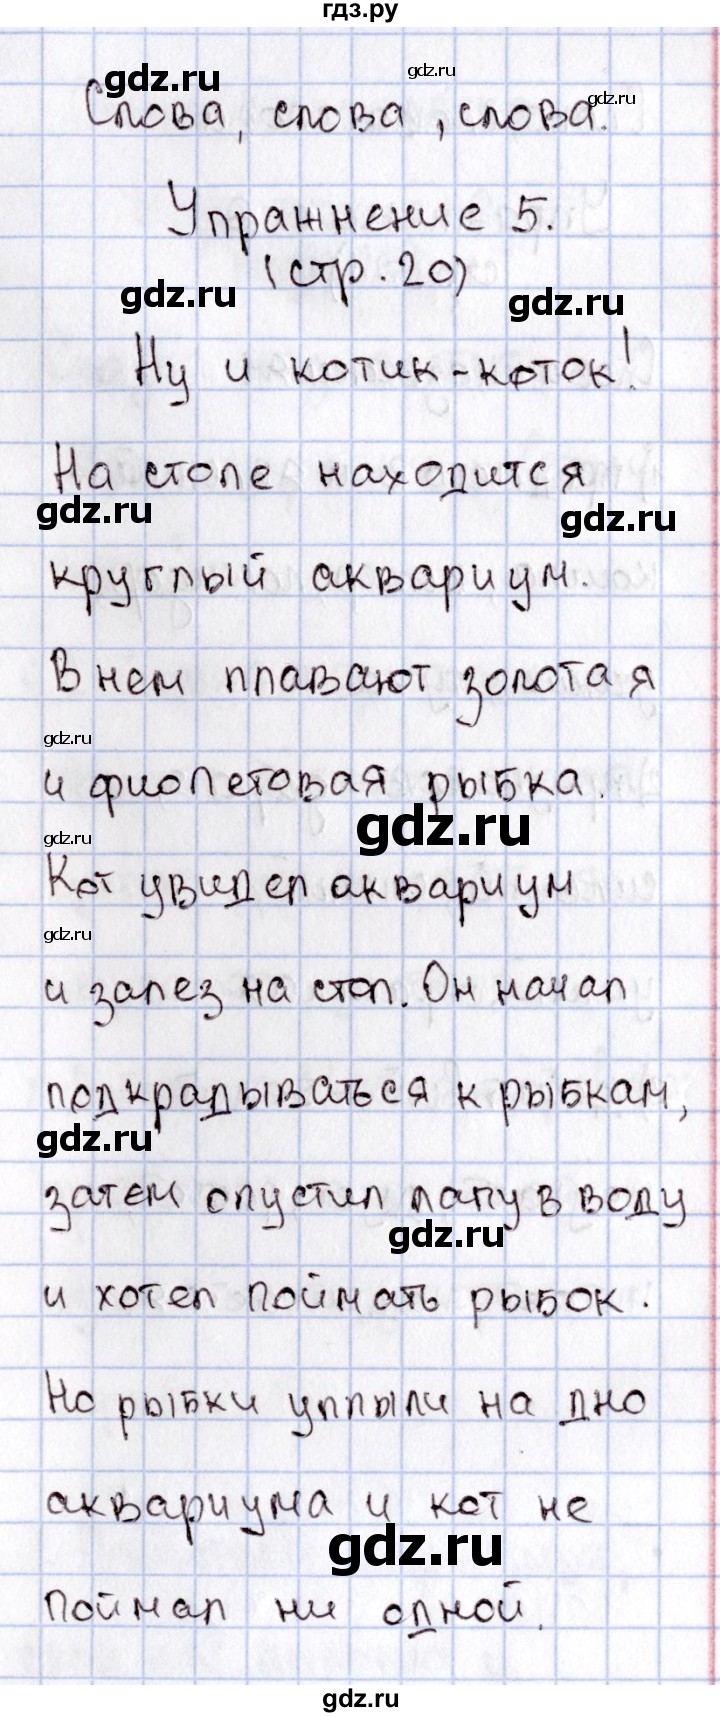 гдз.ру
gdz.ru
gdz.ru
gdz.ru
Слова, слова, слова.
Упражнение 5.
(стр. 20)
gdz.ru
gdz.ru
Ну и котик-коток!
На столе находится
gdz.ru
gdz.ru
круглый аквариум.
В нем плавают золотая
gdz.ru
и фиолетовая рыбка.
gdz.ru
gdz.ru
Кот увидел аквариум
gdz.ru
и залез на стол. Он начал
подкрадываться к рыбкам,
gdz.ru
затем опустил лапу в воду
gdz.ru
и хотел поймать рыбок.
Но рыбки уплыли на дно
аквариума и кот не
gdz.ru
поймал ни одной.
gdz.ru